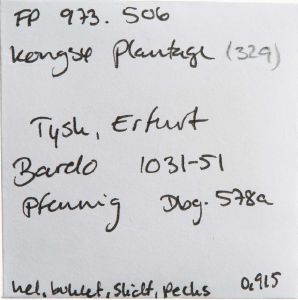 FP 973.506
Kongsø Plantage (329)
Tysk, Erfurt
Bardo 1031-51
Pfennig Dbg. 578a
hel, bukket, slidt, pecks 0,915